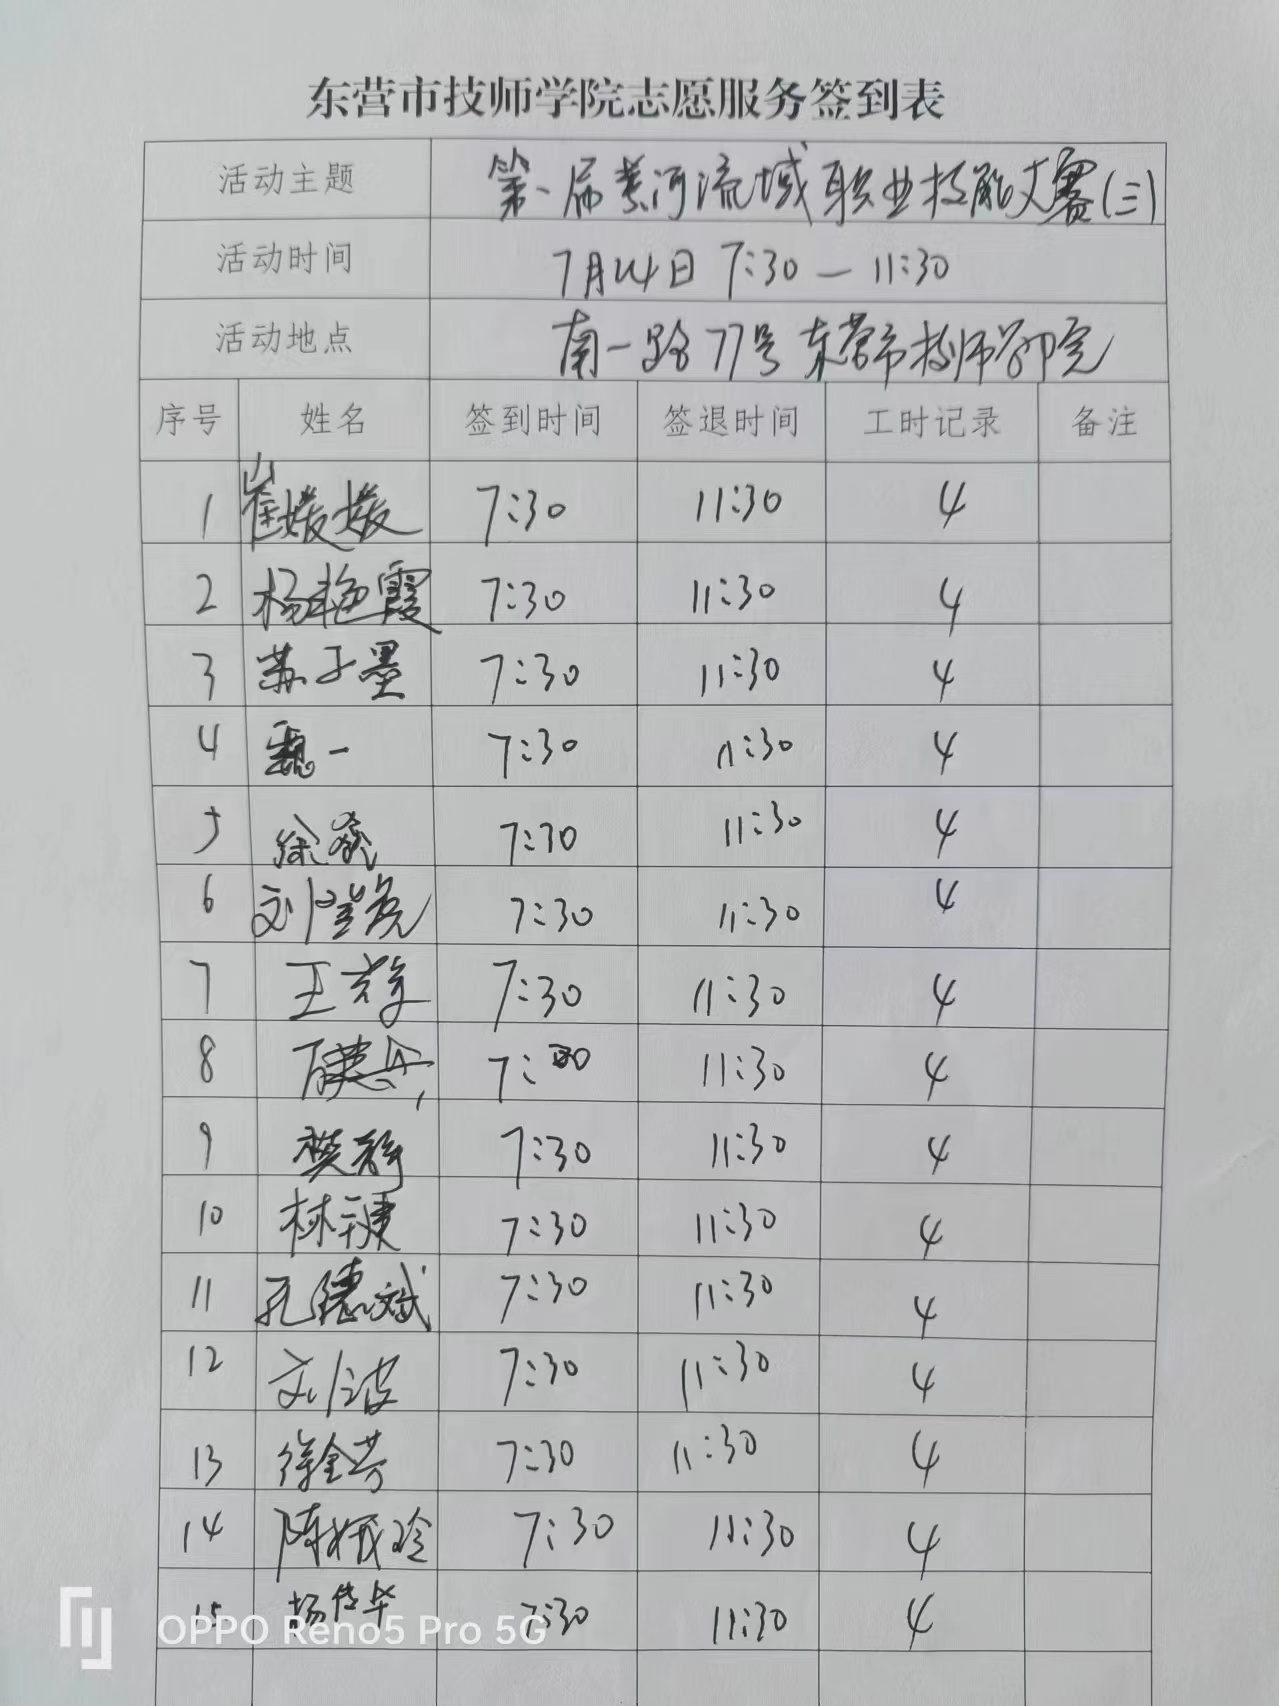 东营市技师学院志愿服务签到表
活动主题 第一届黄河流域职业技能大赛(三)
活动时间 7月14日 7:30 — 11:30
活动地点 南一路77号东营市技师学院
序号 姓名 签到时间 签退时间 工时记录 备注
1 崔媛媛 7:30 11:30 4
2 杨艳霞 7:30 11:30 4
3 苏子墨 7:30 11:30 4
4 魏一 7:30 11:30 4
5 徐 7:30 11:30 4
6 刘 7:30 11:30 4
7 王 7:30 11:30 4
8 7:30 11:30 4
9 樊静 7:30 11:30 4
10 林 7:30 11:30 4
11 孔德斌 7:30 11:30 4
12 刘波 7:30 11:30 4
13 徐金芳 7:30 11:30 4
14 陈娥玲 7:30 11:30 4
15 杨传华 7:30 11:30 4
OPPO Reno5 Pro 5G